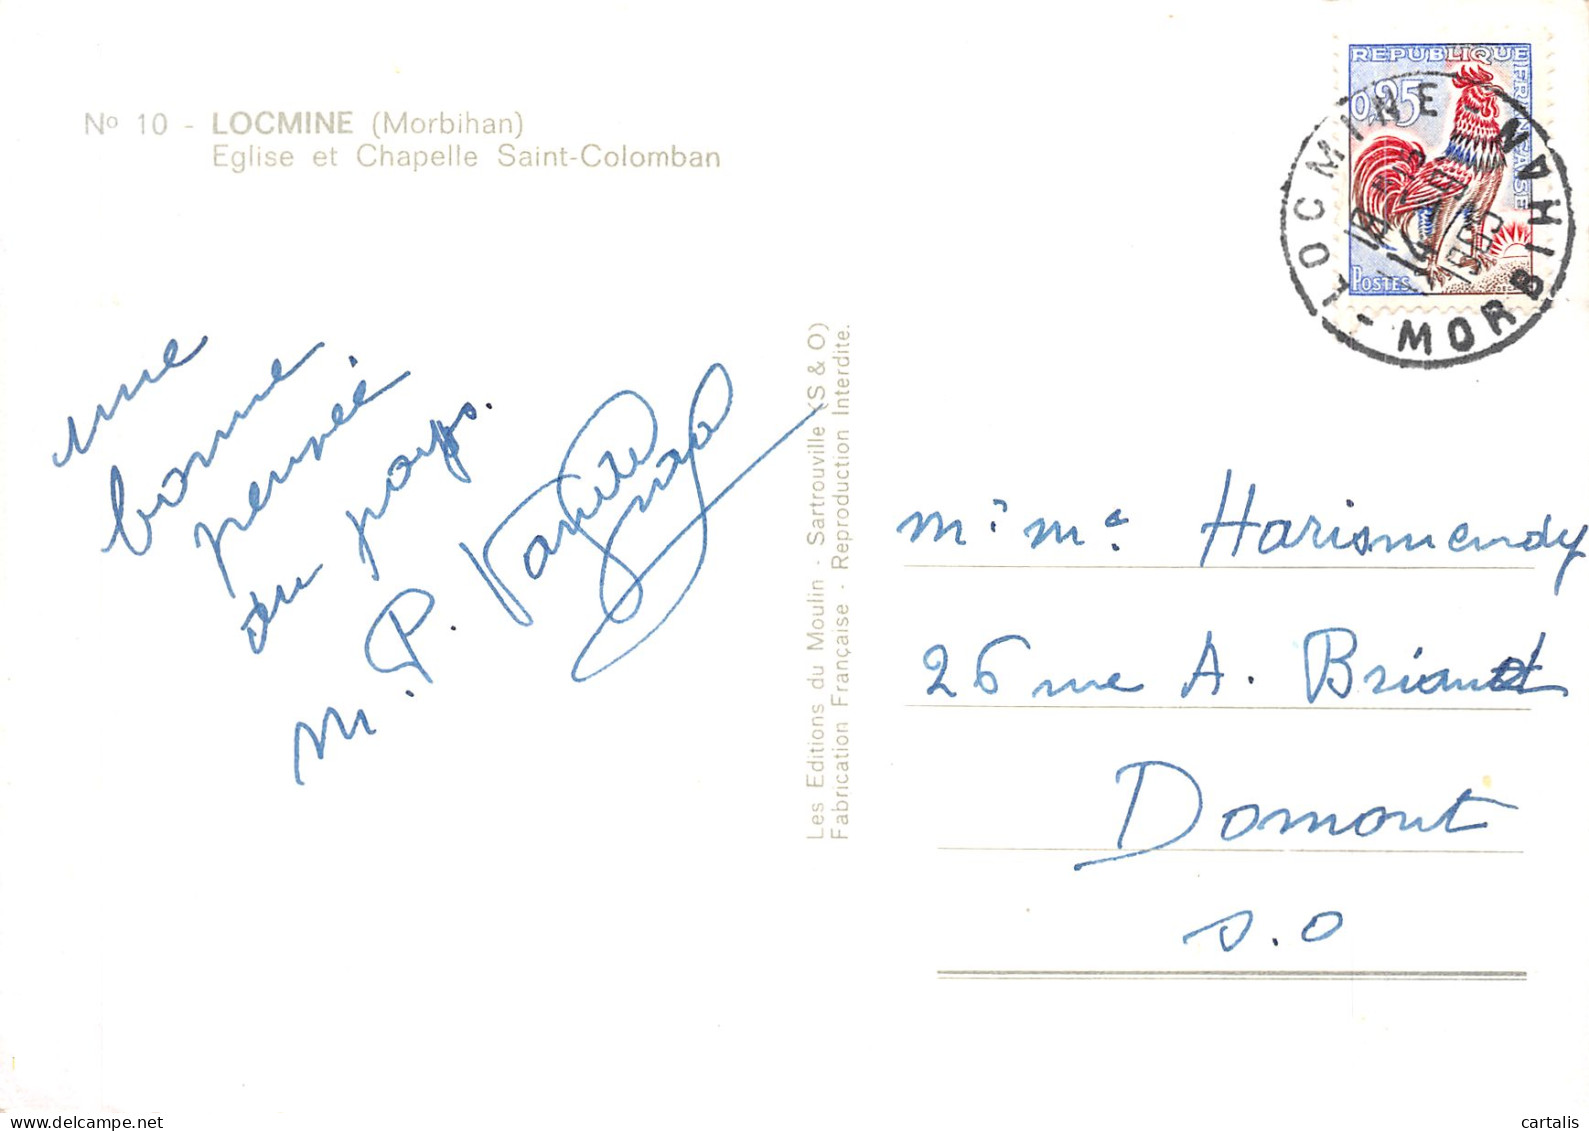 Nº 10 - LOCMINE (Morbihan)
Eglise et Chapelle Saint-Colomban
REPUBLIQUE
FRANÇAISE
0,25
POSTES
LOCMINE - MORBIHAN
une
bonne
pensée
du pays.
m. P.
Les Editions du Moulin - Sartrouville (S & O)
Fabrication Française - Reproduction Interdite.
m. mᵉ Harismendy
26 rue A. Briand
Domont
S.O
cartalis
delcampe.net